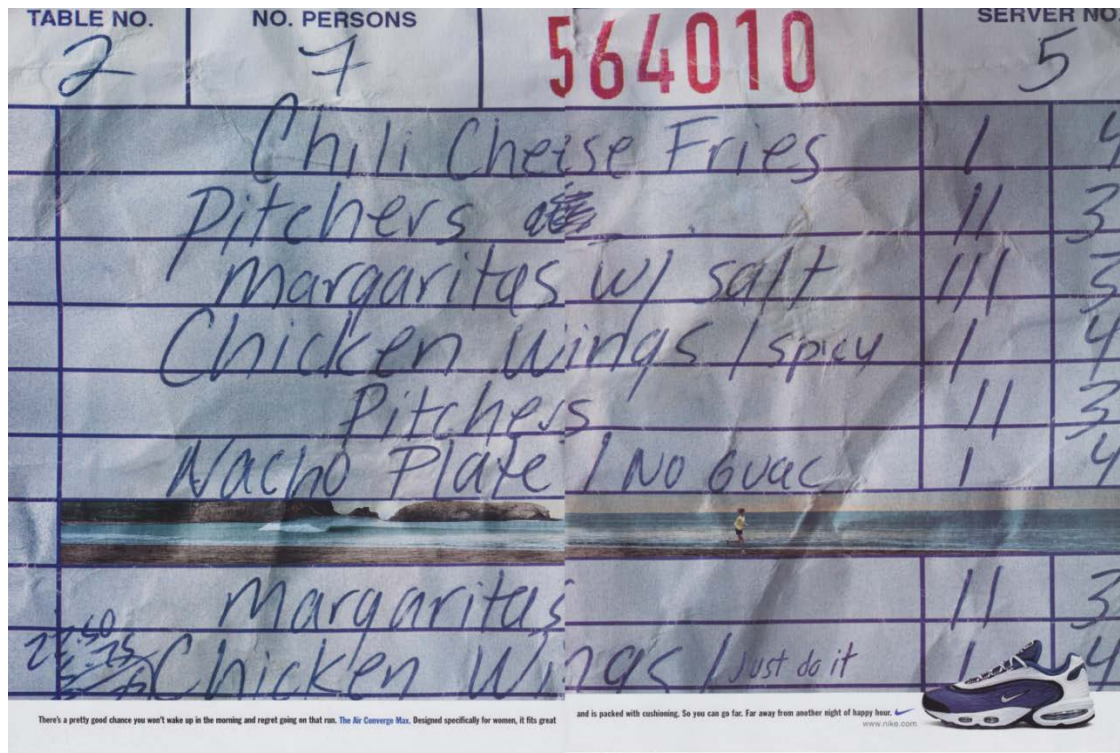 TABLE NO. NO. PERSONS SERVER NO
2 7 564010 5
Chili Cheese Fries 1 4
Pitchers 11 3
Margaritas w/ salt 111 3
Chicken Wings / spicy 1 4
Pitchers 11 3
Nacho Plate / No Guac 1 4
Margaritas 11 3
Chicken Wings / Just do it 1 4
There's a pretty good chance you won't wake up in the morning and regret going on that run. The Air Converge Max. Designed specifically for women, it fits great and is packed with cushioning. So you can go far. Far away from another night of happy hour.
www.nike.com